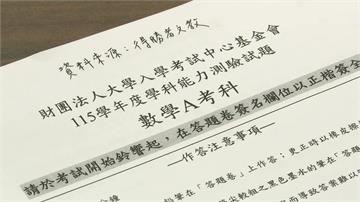 資料來源：得勝者文教
財團法人大學入學考試中心基金會
115學年度學科能力測驗試題
數學A考科
請於考試開始鈴響起，在答題卷簽名欄位以正楷簽全
—作答注意事項—
鐘
鉛筆在「答題卷」上作答；更正時以橡皮擦
尖較粗之黑色墨水的筆在「答題
而導致答案難以